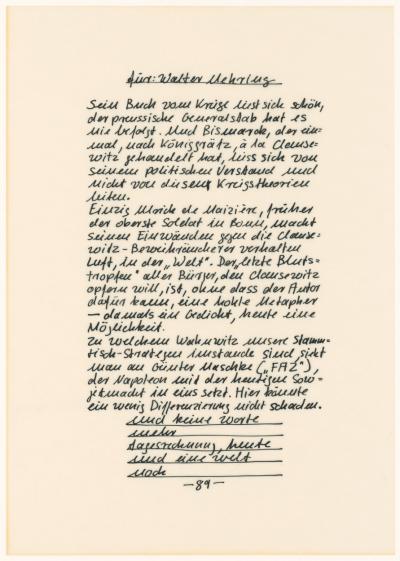 für: Walter Mehring
Sein Buch vom Kriege liest sich schön,
der preussische Generalstab hat es
nie befolgt. Und Bismarck, der ein-
mal, nach Königgrätz, à la Clause-
witz gehandelt hat, liess sich von
seinem politischen Verstand und
nicht von diesen Kriegstheorien
leiten.
Einzig Ulrich de Maizière, früher
der oberste Soldat in Bonn, macht
seinen Einwänden gegen die Clause-
witz-Beweihräucherer verhalten
Luft, in der „Welt". Der „letzte Bluts-
tropfen" aller Bürger, den Clausewitz
opfern will, ist, ohne dass der Autor
dafür kann, eine hohle Metapher
— damals ein Gedicht, heute eine
Möglichkeit.
Zu welchem Wahnwitz unsere Stamm-
tisch-Strategen imstande sind, sieht
man an Günter Maschke („FAZ"),
der Napoleon mit der heutigen Sow-
jetmacht in eins setzt. Hier könnte
ein wenig Differenzierung nicht schaden.
und keine Worte
mehr
tagesrechnung, heute
und eine welt
noch
— 89 —